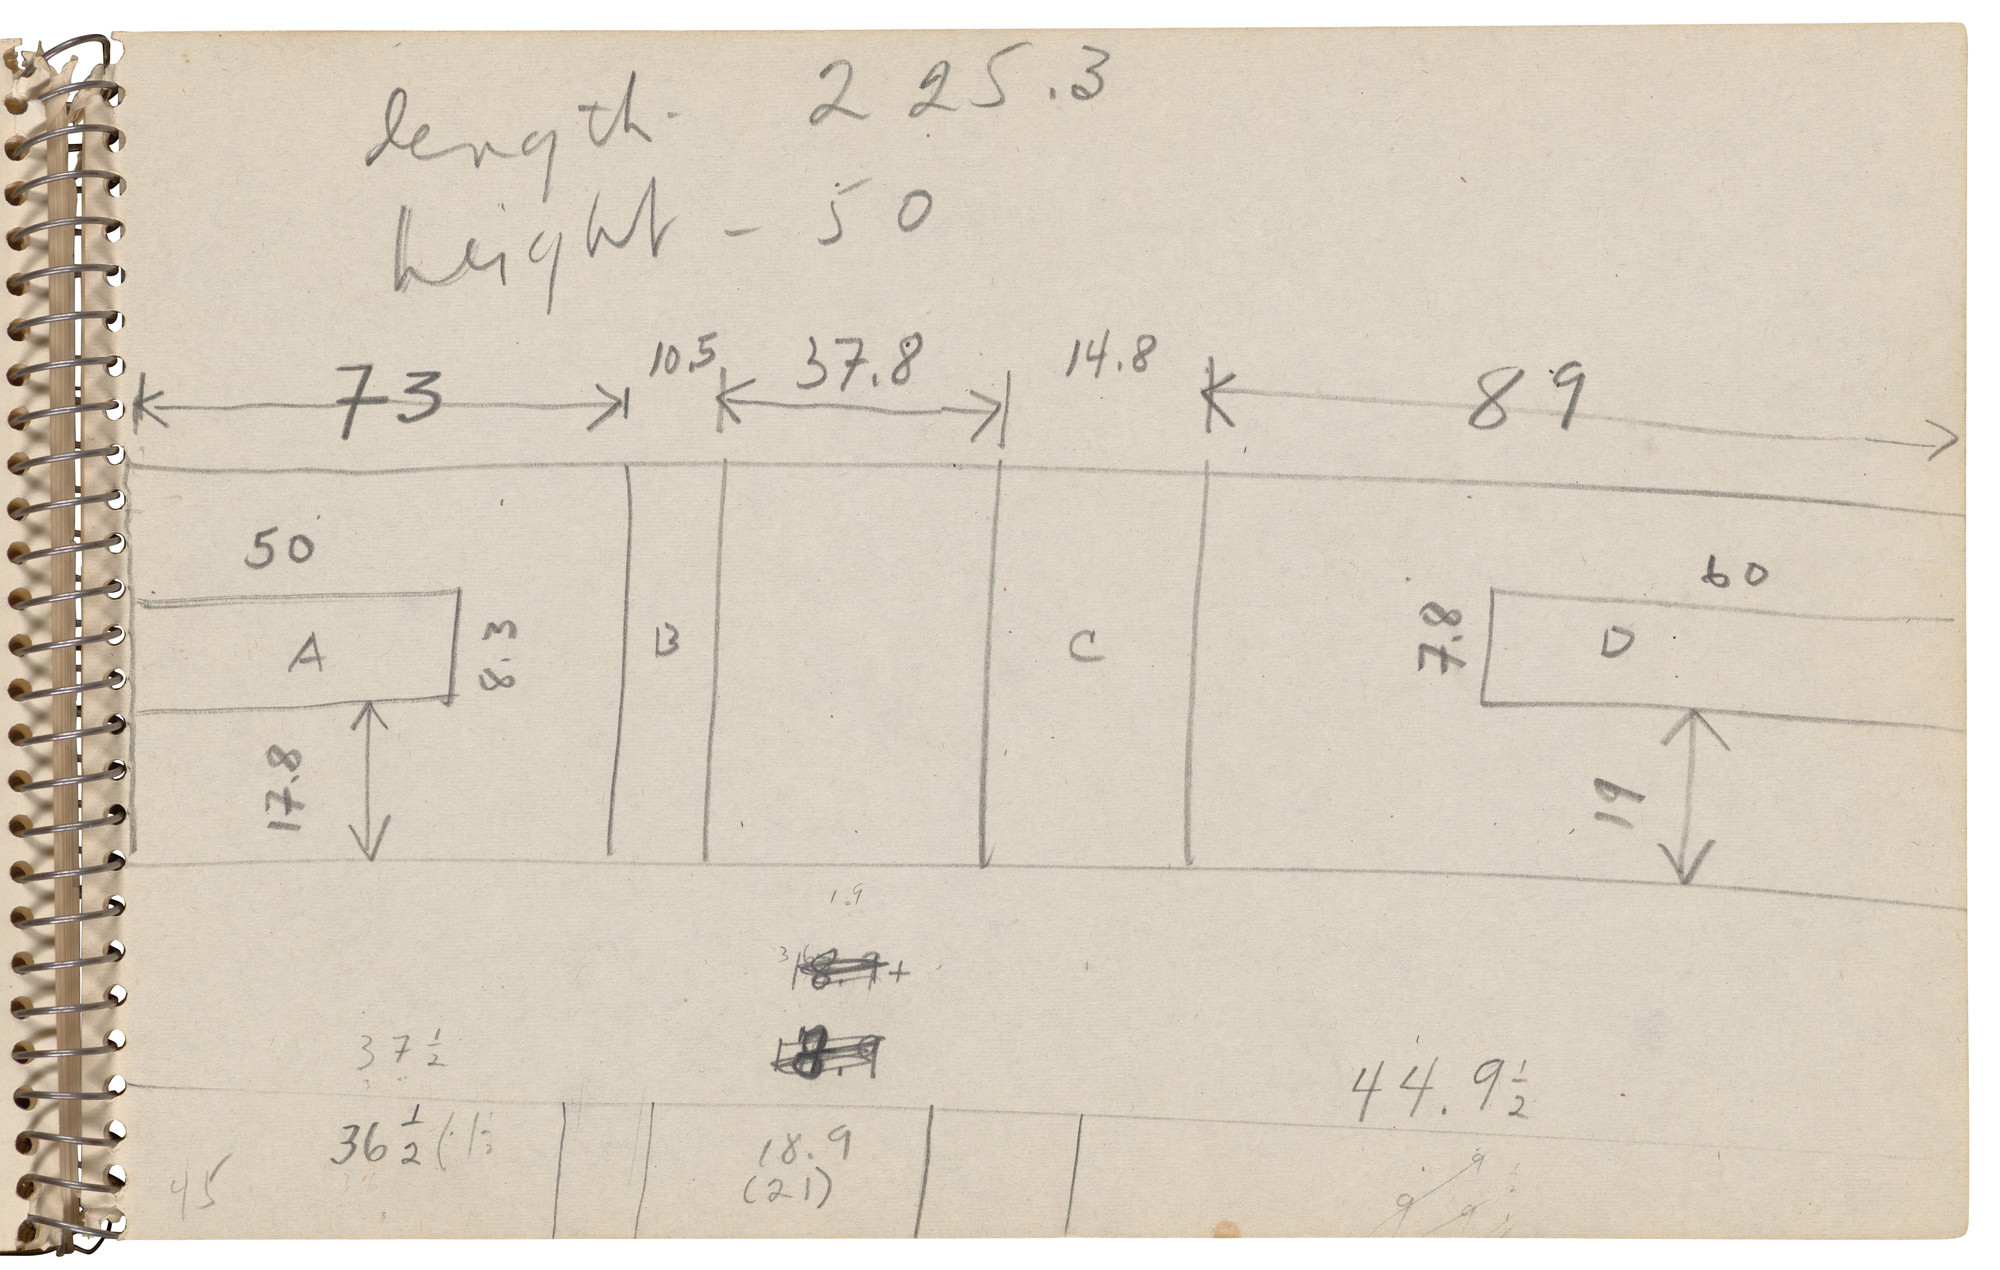 length - 225.3
height - 50
73 10.5 37.8 14.8 89
50 60
A 8.3 B C 7.8 D
17.8 19
1.9
18.9+
37 1/2 18.9
44.9 1/2
36 1/2 18.9
45 (21)
9
9 9